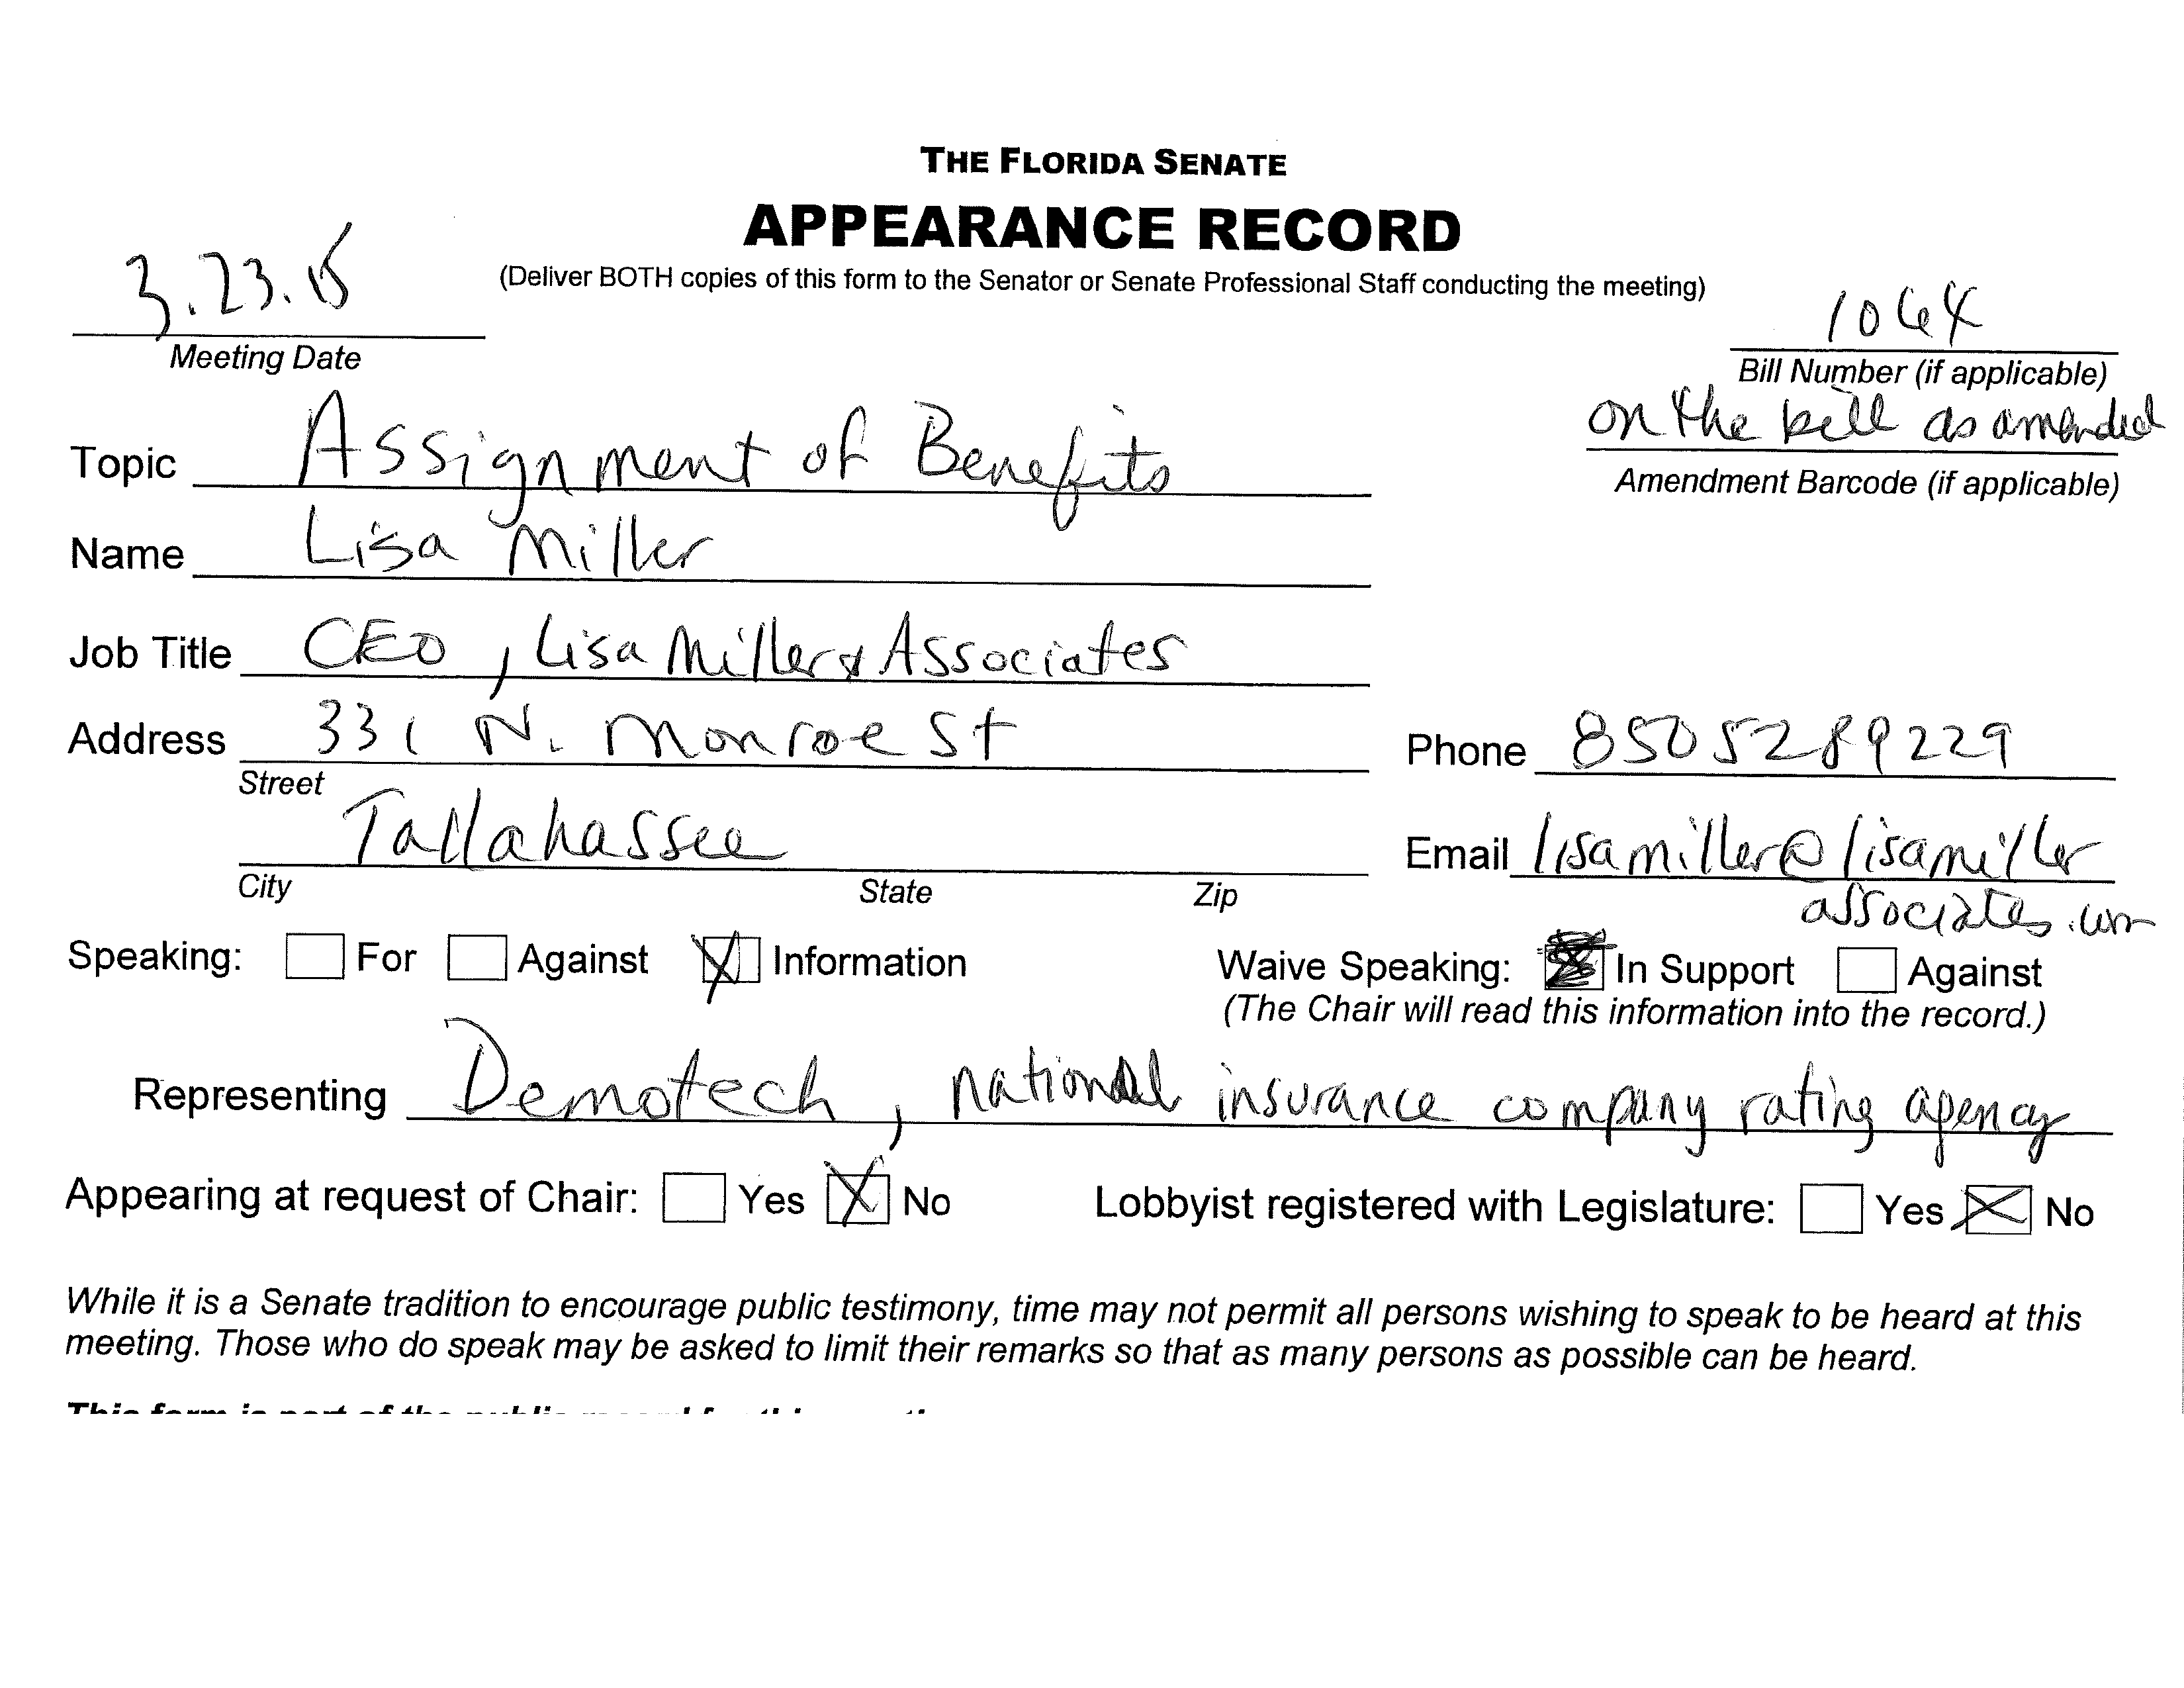 THE FLORIDA SENATE
APPEARANCE RECORD
(Deliver BOTH copies of this form to the Senator or Senate Professional Staff conducting the meeting)
3.23.15
Meeting Date
1064
Bill Number (if applicable)
on the bill as amended
Amendment Barcode (if applicable)
Topic Assignment of Benefits
Name Lisa Miller
Job Title CEO, Lisa Miller & Associates
Address 331 N. Monroe St
Street
Phone 8505289229
Tallahassee
City State Zip
Email lisamiller@lisamiller
associates.com
Speaking: For Against Information
Waive Speaking: In Support Against
(The Chair will read this information into the record.)
Representing Demotech, national insurance company rating agency
Appearing at request of Chair: Yes No
Lobbyist registered with Legislature: Yes No
While it is a Senate tradition to encourage public testimony, time may not permit all persons wishing to speak to be heard at this
meeting. Those who do speak may be asked to limit their remarks so that as many persons as possible can be heard.